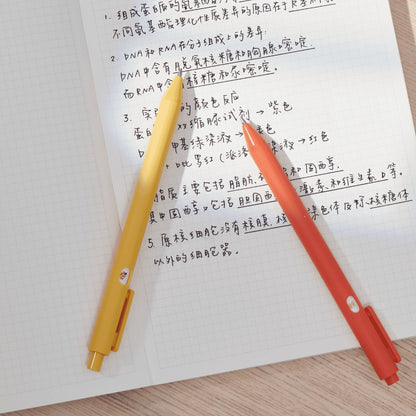 1. 组成蛋白质的氨基
不同氨基酸理化性质差异的原因在于R基
2. DNA和RNA在分子组成上的差异:
DNA中含有脱氧核糖和胸腺嘧啶,
而RNA中含有核糖和尿嘧啶.
3. 的颜色反应
蛋 缩脲试剂 → 紫色
甲基绿染液 → 色
吡罗红 染液 → 红色
脂质主要包括脂肪, 和固醇,
其中固醇又包括胆固醇 激素, 和维生素D等。
5. 原核细胞没有核膜, 核 染色体及除核糖体
以外的细胞器。